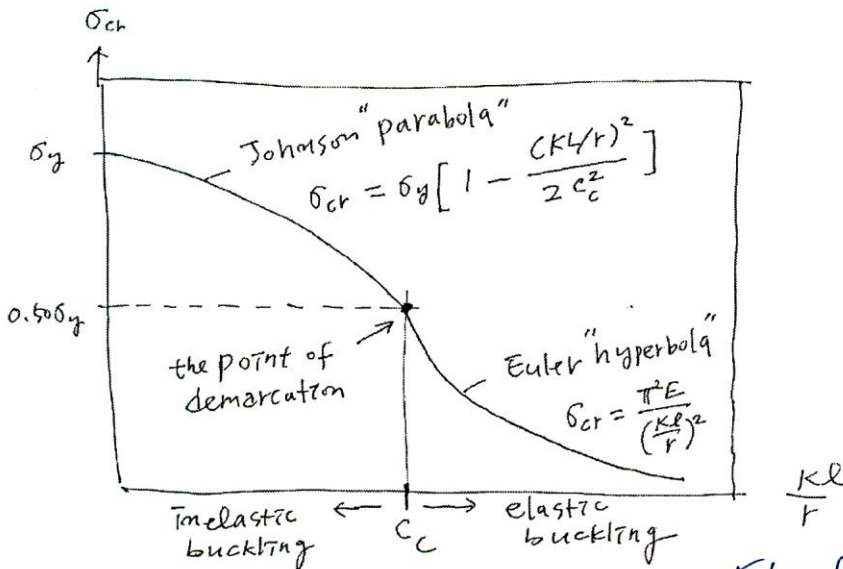 σcr
σy
Johnson "parabola"
σcr = σy[ 1 - (KL/r)² / 2 Cc² ]
0.50σy
the point of
demarcation
Euler "hyperbola"
σcr = π²E / (Kℓ/r)²
inelastic
buckling
← Cc →
elastic
buckling
Kℓ / r